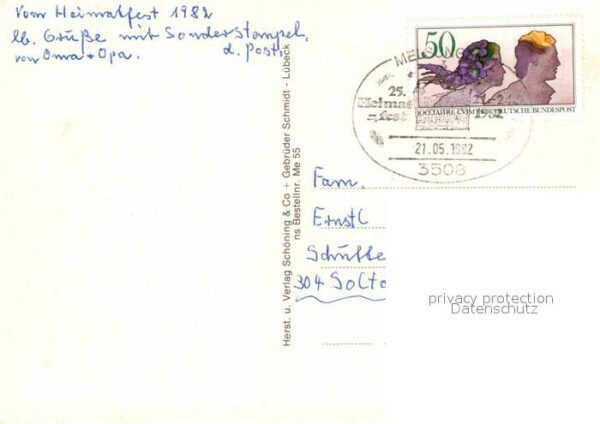 Vom Heimatfest 1982
lb. Grüße mit Sonderstempel,
von Oma + Opa. d. Post,
Herst. u. Verlag Schöning & Co + Gebrüder Schmidt - Lübeck
ns Bestellnr. Me 55
50
100 JAHRE CVJM DEUTSCHE BUNDESPOST
25.
Heimat
-fest
21.-24.5.
1982
21.05.1982
3508
Fam.
Schütte
304 Solta
privacy protection
Datenschutz